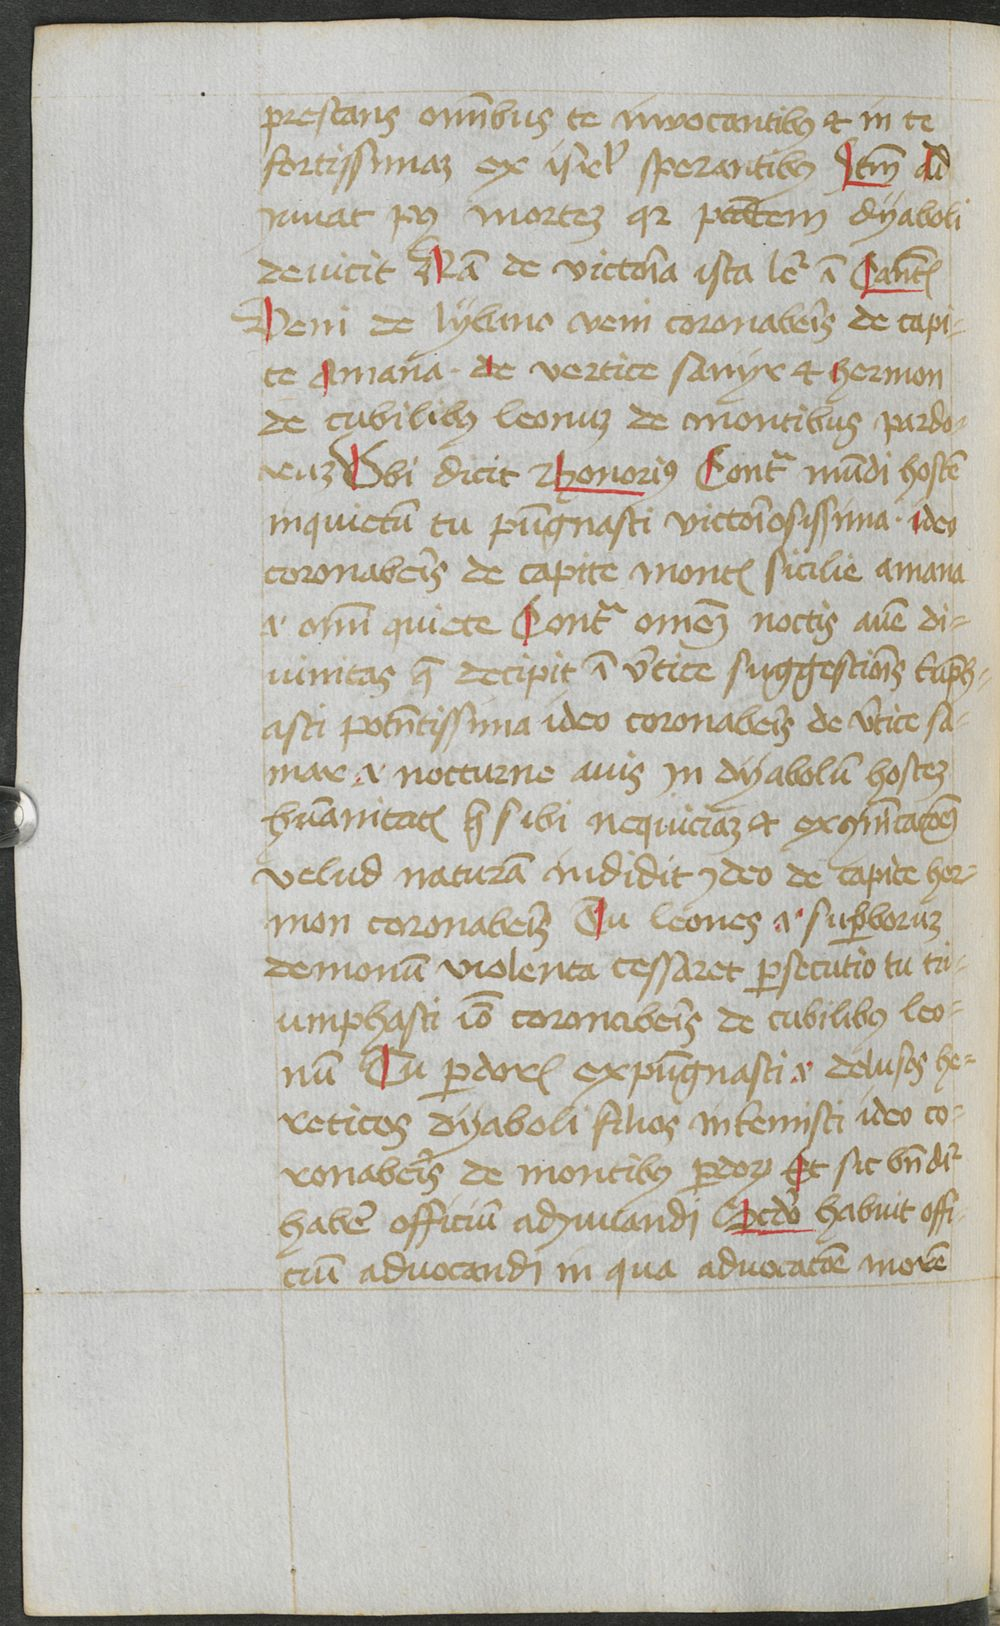 prestans omnibus te invocantibꝫ et in te
fortissimaꝫ ex isrl' sperantibꝫ Itm̄ ad
iuuat pꝰ morteꝫ qꝛ ptātem dyaboli
deuicit Nā de victoria ista lr̄ ī Cantꝭ
Veni de lybano veni coronaberis de capi-
te Amana· de vertice sanyr et hermon
de cubilibꝫ leonuꝫ de montibus pardo-
ruꝫ Vbi dicit Rhonoriꝰ Contᵃ mūdi hostē
inquietū tu pūgnasti victoriosissima· ideo
coronaberis de capite montꝭ sicilie amana
a om̄i quiete Contᵃ omēꝫ noctis auē di-
uinitas q̄ decipit ī v̄tice suggestiōis
asti potn̄tissima ideo coronaberis de v̄tice sa-
nocturne auis In dyabolū hosteꝫ
hūanitatꝭ sibi nequiciaꝫ et
velud naturā indidit ydeo de capite her-
mon coronaberis Tu leones a supboruꝫ
demonū violenta cessaret psecutio tu tri-
umphasti iō coronaberis de cubilibꝫ leo-
nū Tu pdoꝝ expūgnasti a delusos he-
reticos dyaboli filios intemisti ideo co-
ronaberis de montibꝫ pdoꝝ Et sic vn̄ dr̄
habē officiū adyuuandi Scd̄o habuit offi-
ciū aduocandi in qua aduocacōe morē